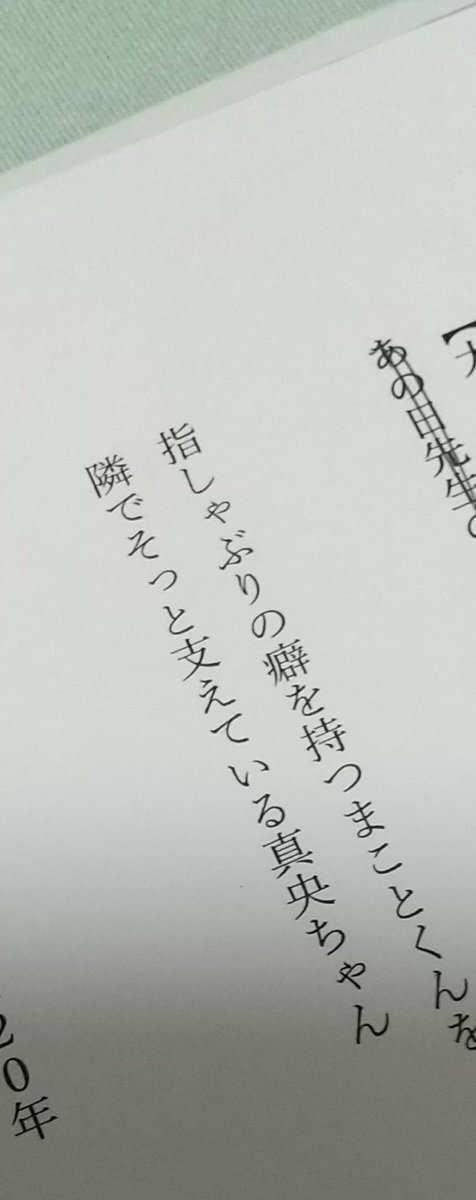 あの田先生
指しゃぶりの癖を持つまことくんを
隣でそっと支えている真央ちゃん
20年